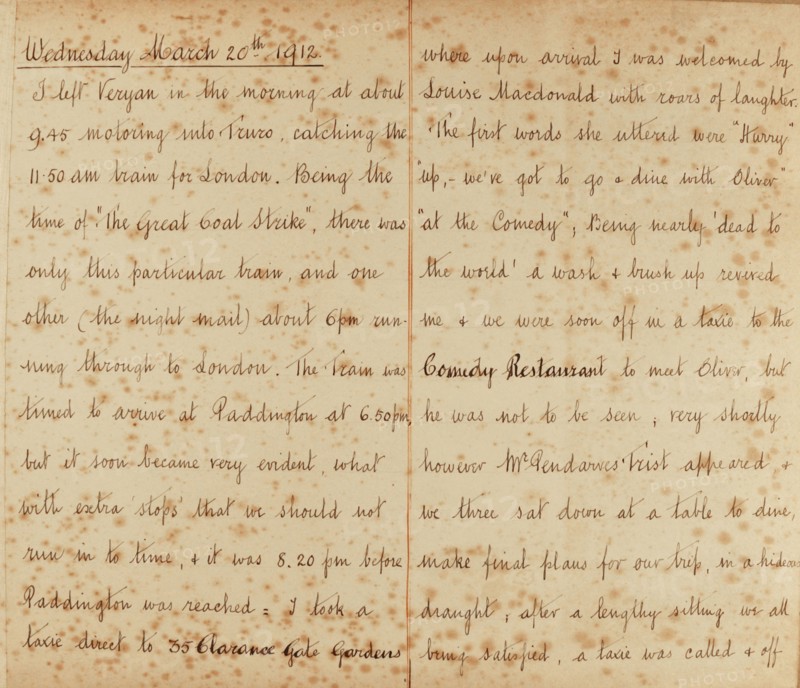 Wednesday March 20th 1912.
I left Veryan in the morning at about
9.45 motoring into Truro, catching the
11.50 am train for London. Being the
time of "The Great Coal Strike", there was
only this particular train, and one
other (the night mail) about 6pm run-
ning through to London. The Train was
timed to arrive at Paddington at 6.50pm,
but it soon became very evident, what
with extra 'stops' that we should not
run in to time, & it was 8.20 pm before
Paddington was reached = I took a
taxie direct to 35 Clarance Gate Gardens
where upon arrival I was welcomed by
Louise Macdonald with roars of laughter.
The first words she utterid were "Hurry"
"up,- we've got to go & dine with Oliver"
"at the Comedy"; Being nearly 'dead to
the world' a wash & brush up revived
me & we were soon off in a taxie to the
Comedy Restaurant to meet Oliver, but
he was not to be seen; very shortly
however Mr Pendarves Vrist appeared &
we three sat down at a table to dine,
make final plans for our trip, in a hideous
draught; after a lengthy sitting we all
being satisfied, a taxie was called & off